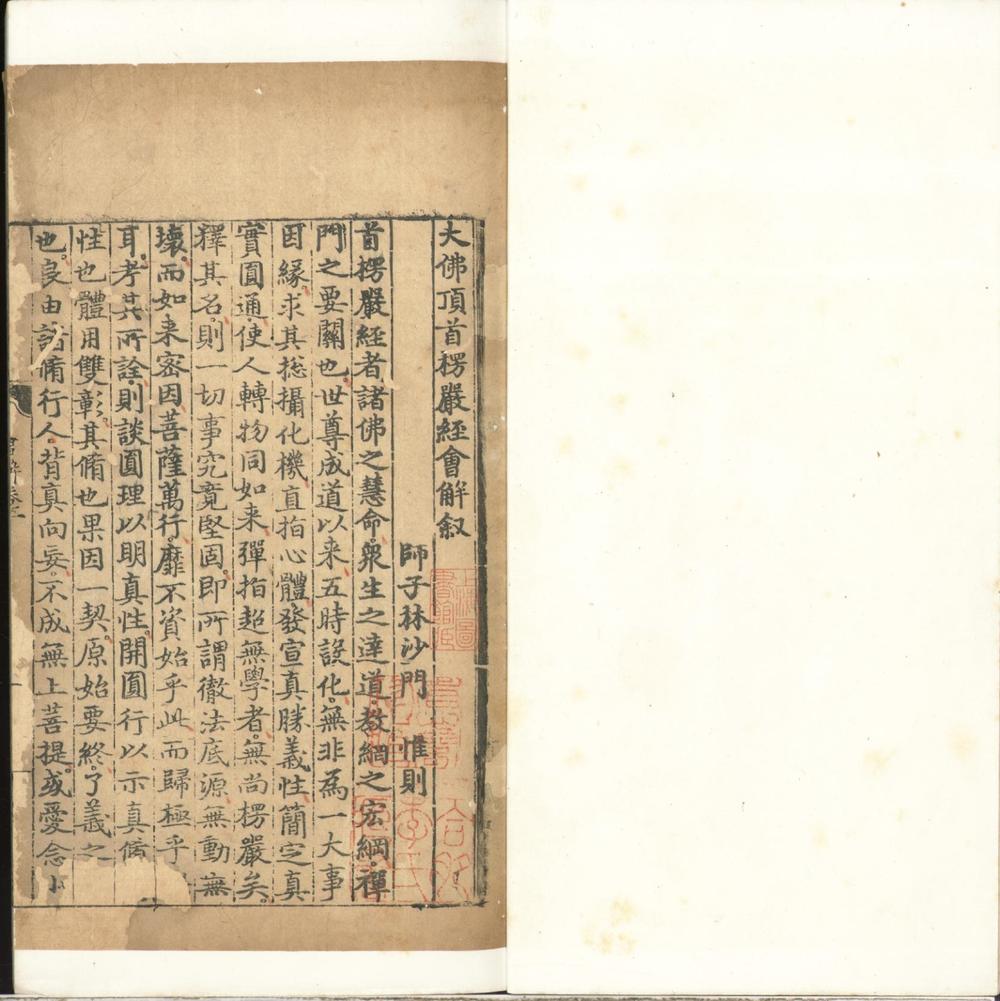 大佛頂首楞嚴經會解叙
師子林沙門 惟則
首楞嚴經者諸佛之慧命衆生之達道教網之宏綱禪
門之要關也世尊成道以来五時設化無非為一大事
因緣求其捴攝化機直指心體發宣真勝義性簡定真
實圓通使人轉物同如来彈指超無學者無尚楞嚴矣
釋其名則一切事究竟堅固即所謂徹法底源無動無
壞而如来密因菩薩萬行靡不資始乎此而歸極乎
耳考其所詮則談圓理以明真性開圓行以示真脩
性也體用雙彰其脩也果因一契原始要終了義之
也良由諸脩行人背真向妄不成無上菩提或愛念小